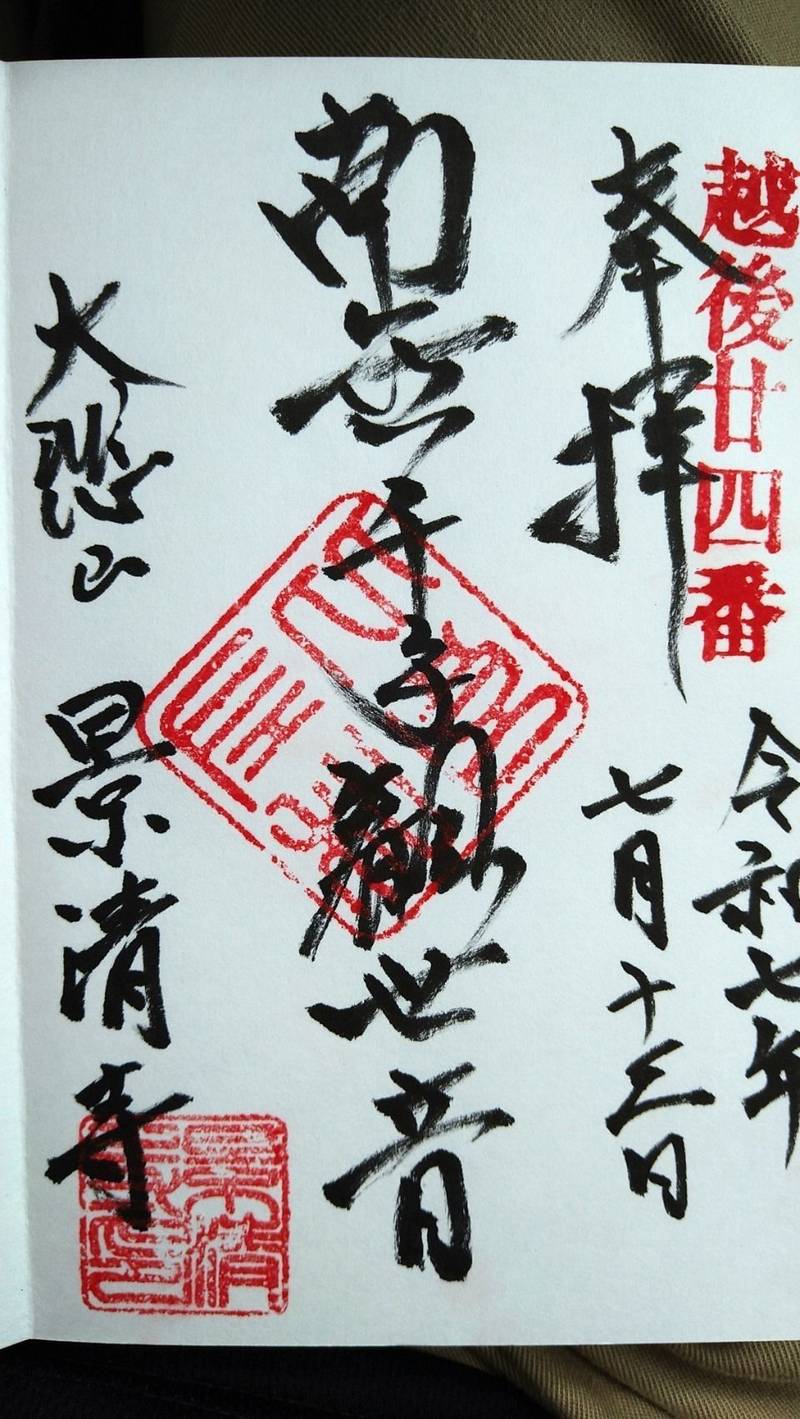 越後廿四番
令和七年
奉拝
七月十三日
南無千手観世音
大悲山 景清寺